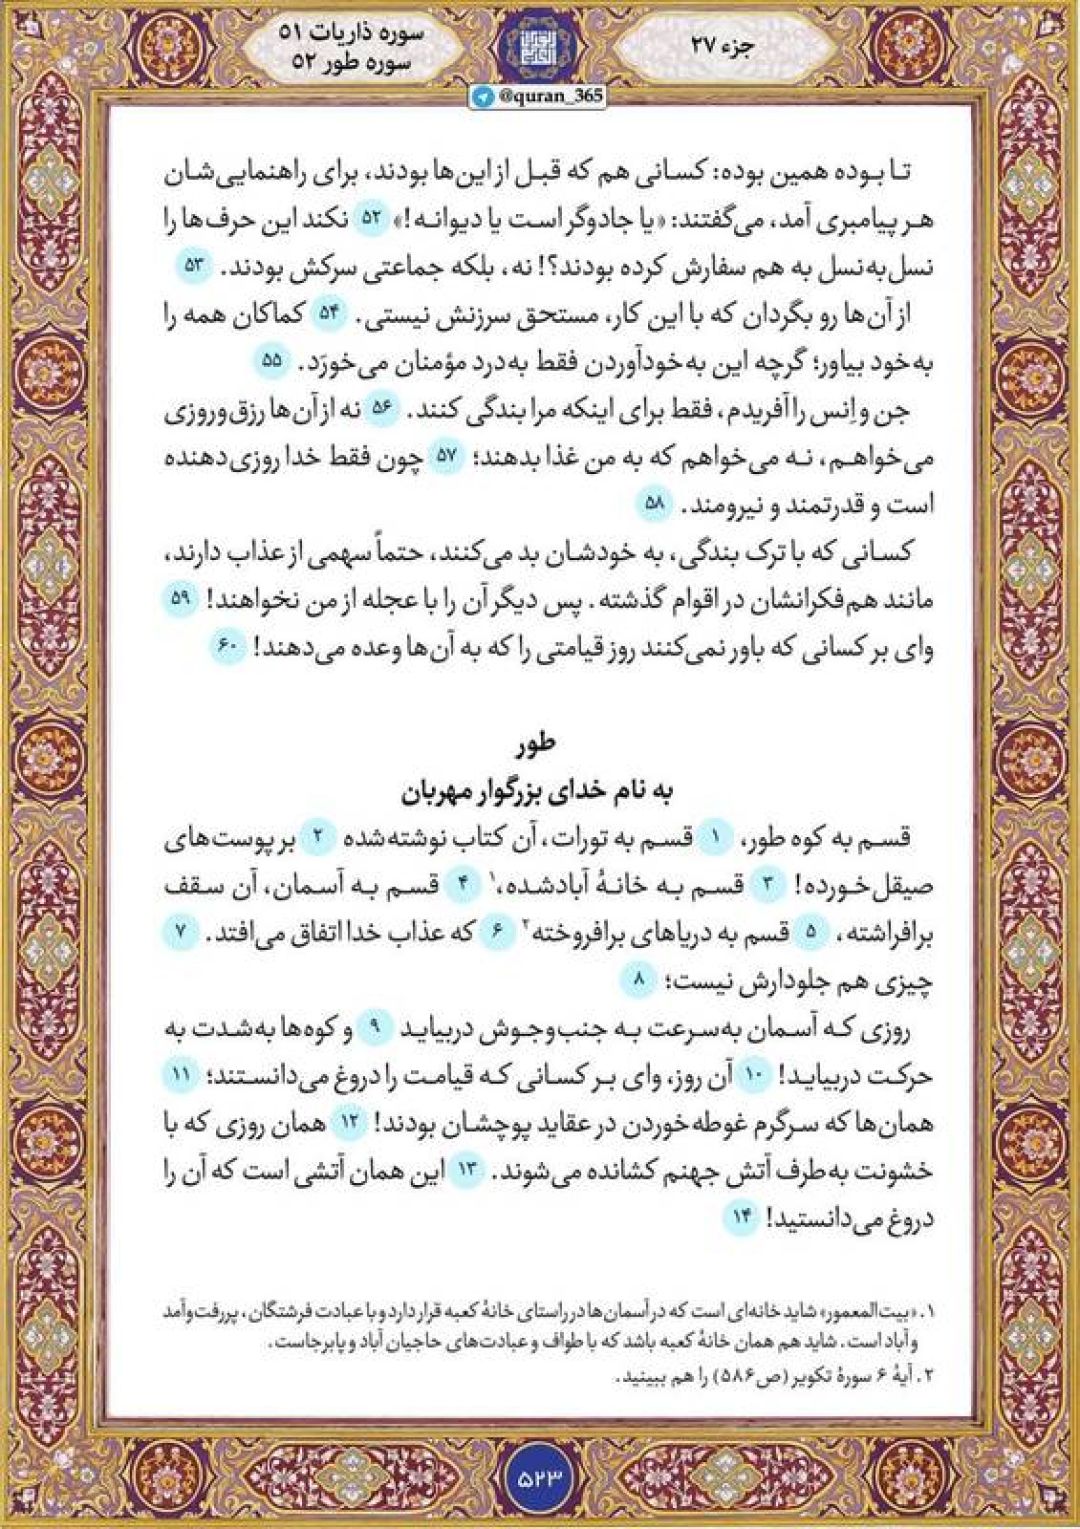 جزء ۲۷
سوره ذاریات ۵۱
سوره طور ۵۲
@quran_365
تا بوده همین بوده: کسانی هم که قبل از این‌ها بودند، برای راهنمایی‌شان
هر پیامبری آمد، می‌گفتند: «یا جادوگر است یا دیوانه!» ۵۲ نکند این حرف‌ها را
نسل‌به‌نسل به هم سفارش کرده بودند؟! نه، بلکه جماعتی سرکش بودند. ۵۳
از آن‌ها رو بگردان که با این کار، مستحق سرزنش نیستی. ۵۴ کماکان همه را
به‌خود بیاور؛ گرچه این به‌خودآوردن فقط به‌درد مؤمنان می‌خورَد. ۵۵
جن و اِنس را آفریدم، فقط برای اینکه مرا بندگی کنند. ۵۶ نه از آن‌ها رزق‌وروزی
می‌خواهم، نه می‌خواهم که به من غذا بدهند؛ ۵۷ چون فقط خدا روزی‌دهنده
است و قدرتمند و نیرومند. ۵۸
کسانی که با ترک بندگی، به خودشان بد می‌کنند، حتماً سهمی از عذاب دارند،
مانند هم‌فکرانشان در اقوام گذشته. پس دیگر آن را با عجله از من نخواهند! ۵۹
وای بر کسانی که باور نمی‌کنند روز قیامتی را که به آن‌ها وعده می‌دهند! ۶۰
طور
به نام خدای بزرگوار مهربان
قسم به کوه طور، ۱ قسم به تورات، آن کتاب نوشته‌شده ۲ بر پوست‌های
صیقل‌خورده! ۳ قسم به خانهٔ آبادشده،۱ ۴ قسم به آسمان، آن سقف
برافراشته، ۵ قسم به دریاهای برافروخته۲ ۶ که عذاب خدا اتفاق می‌افتد. ۷
چیزی هم جلودارش نیست؛ ۸
روزی که آسمان به‌سرعت به جنب‌وجوش دربیاید ۹ و کوه‌ها به‌شدت به
حرکت دربیاید! ۱۰ آن روز، وای بر کسانی که قیامت را دروغ می‌دانستند؛ ۱۱
همان‌ها که سرگرم غوطه‌خوردن در عقاید پوچشان بودند! ۱۲ همان روزی که با
خشونت به‌طرف آتش جهنم کشانده می‌شوند. ۱۳ این همان آتشی است که آن را
دروغ می‌دانستید! ۱۴
۱. «بیت‌المعمور» شاید خانه‌ای است که در آسمان‌ها در راستای خانهٔ کعبه قرار دارد و با عبادت فرشتگان، پررفت‌وآمد
و آباد است. شاید هم همان خانهٔ کعبه باشد که با طواف و عبادت‌های حاجیان آباد و پابرجاست.
۲. آیهٔ ۶ سورهٔ تکویر (ص۵۸۶) را هم ببینید.
۵۲۳